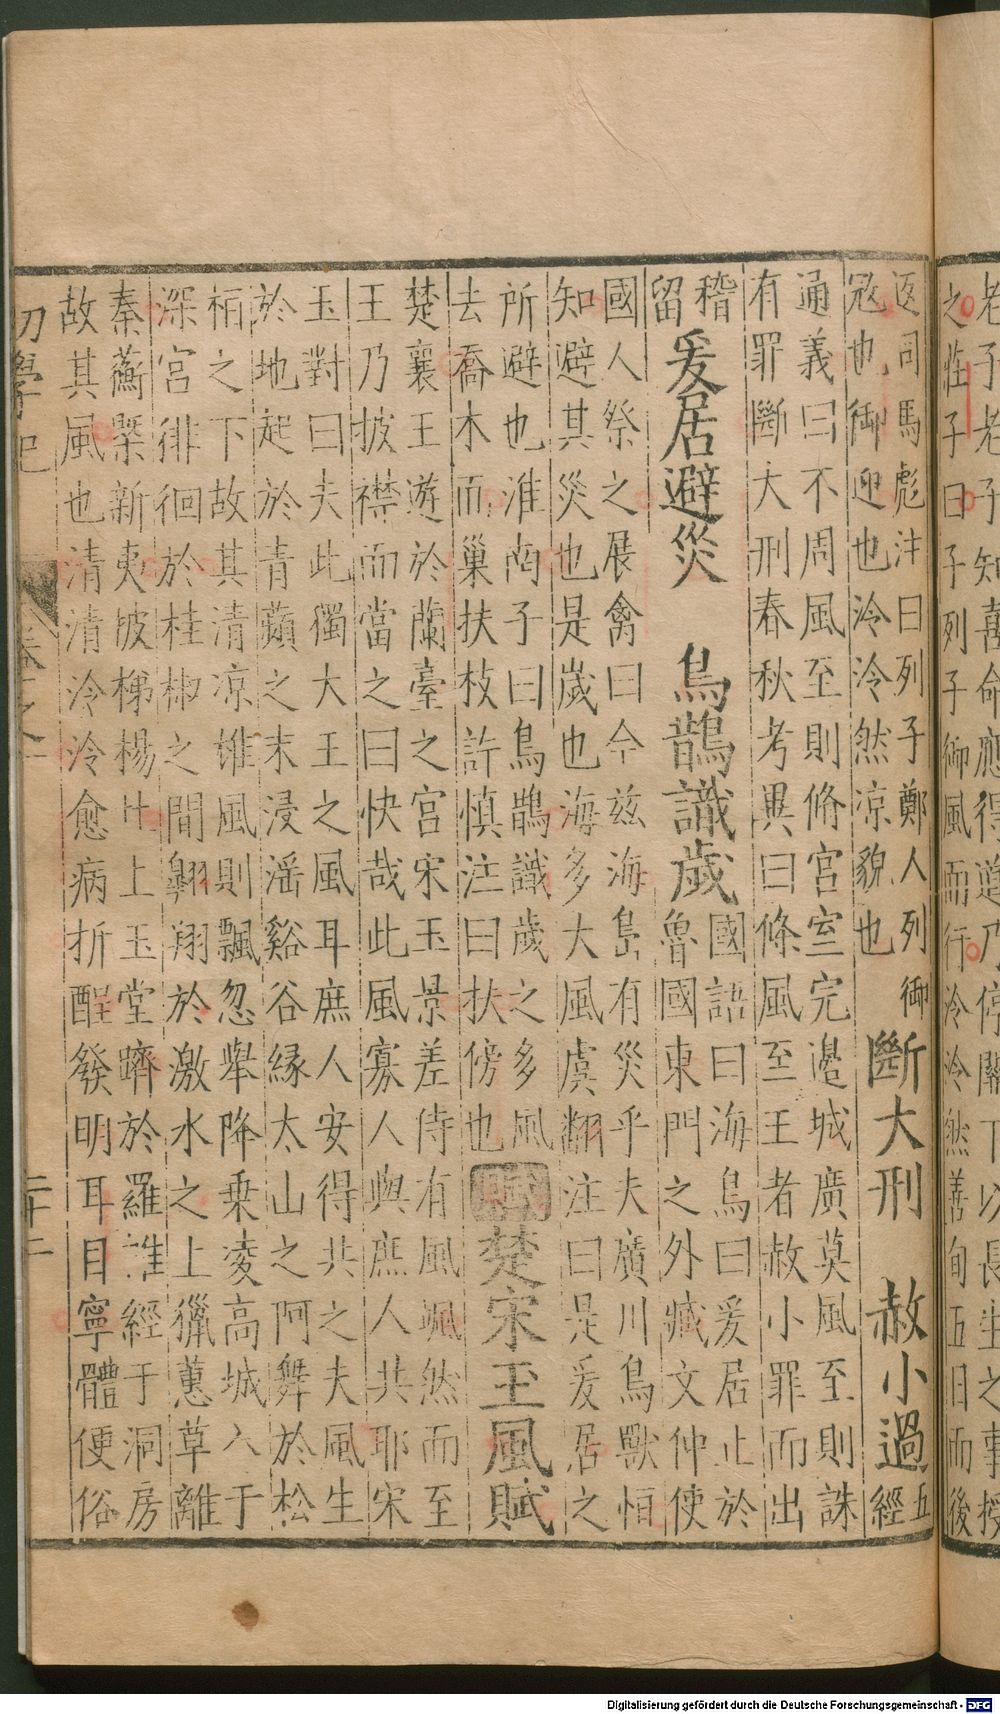 老子老子知喜命應得道乃停關下以長生之事授
之莊子曰子列子御風而行冷冷然善旬五日而後
返司馬彪注曰列子鄭人列御
冦也御迎也冷冷然凉貌也
斷大刑 赦小過
五
經
通義曰不周風至則脩宮室完邊城廣莫風至則誅
有罪斷大刑春秋考異曰條風至王者赦小罪而出
稽
留
爰居避災 烏鵲識歲
國語曰海鳥曰爰居止於
魯國東門之外臧文仲使
國人祭之展禽曰今兹海島有災乎夫廣川鳥獸恒
知避其災也是歲也海多大風虞翻注曰是爰居之
所避也淮南子曰烏鵲識歲之多風
去喬木而巢扶枝許慎注曰扶傍也
賦 楚宋玉風賦
楚襄王遊於蘭臺之宮宋玉景差侍有風颯然而至
王乃披襟而當之曰快哉此風寡人與庶人共耶宋
玉對曰夫此獨大王之風耳庶人安得共之夫風生
於地起於青蘋之末浸滛谿谷縁太山之阿舞於松
栢之下故其清凉雄風則飄忽舉降乗凌高城入于
深宮徘徊於桂椒之間翱翔於激水之上獵蕙草離
秦蘅槩新夷披梯楊北上玉堂躋於羅帷經于洞房
故其風也清清冷冷愈病析酲發明耳目寧體便俗
初學記 卷之一 二十二
Digitalisierung gefördert durch die Deutsche Forschungsgemeinschaft - DFG